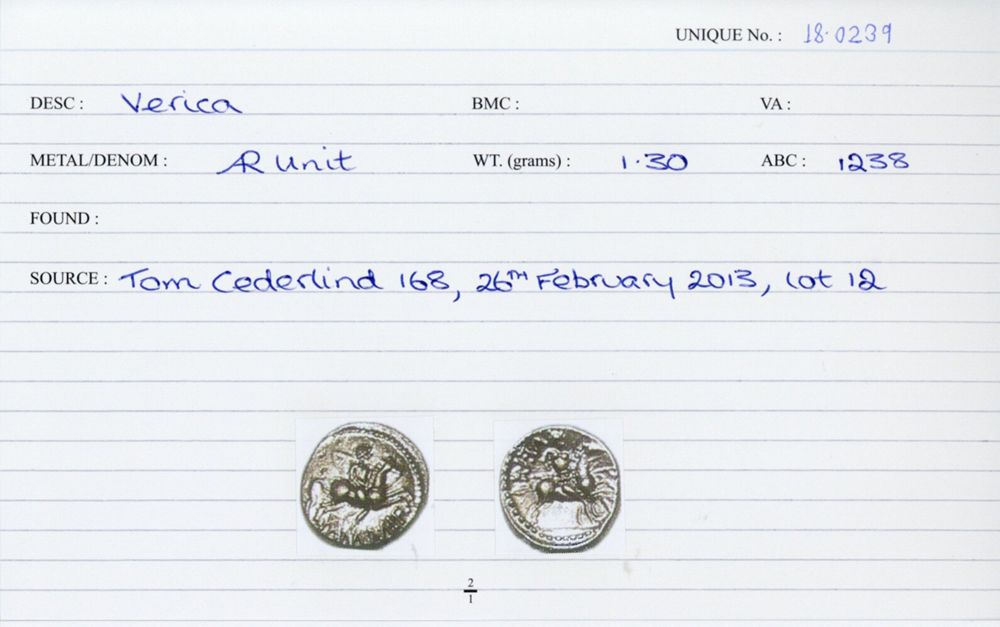 UNIQUE No. : 18.0239
DESC : Verica BMC : VA :
METAL/DENOM : AR Unit WT. (grams) : 1.30 ABC : 1238
FOUND :
SOURCE : Tom Cederlind 168, 26TH February 2013, lot 12
2
1